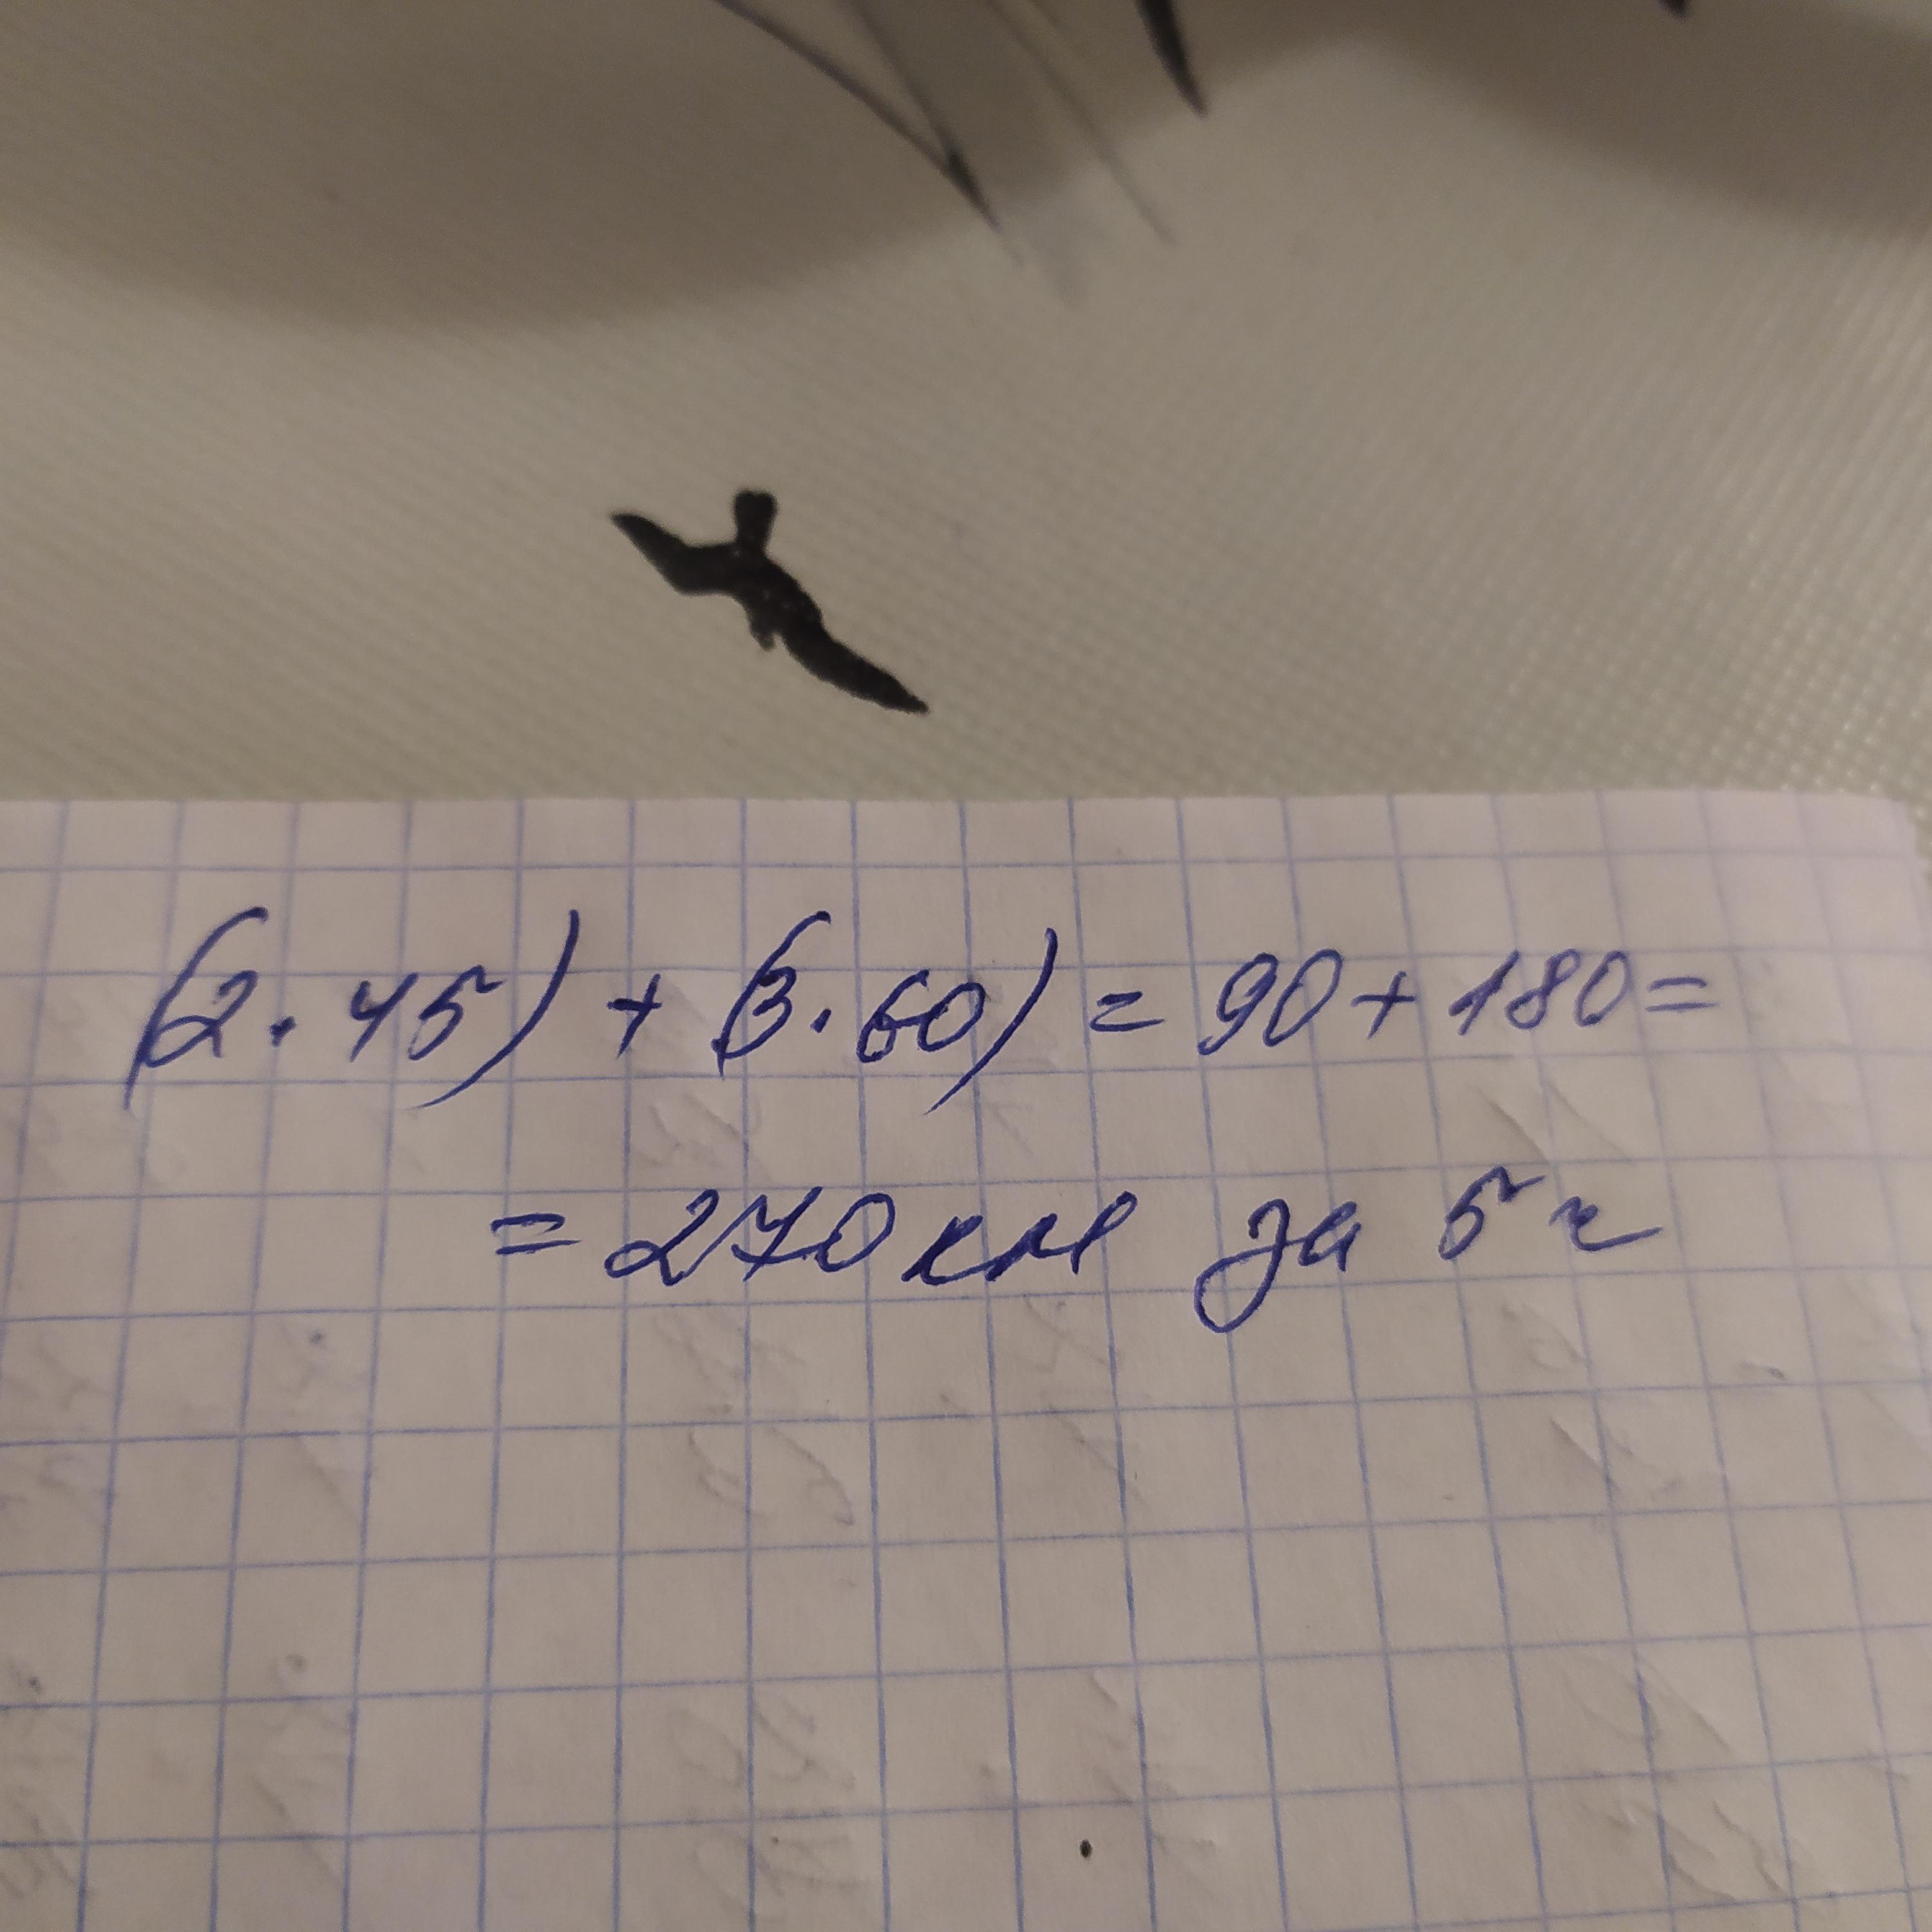 (2·45) + (3·60) = 90 + 180 =
= 270 км за 5 ч